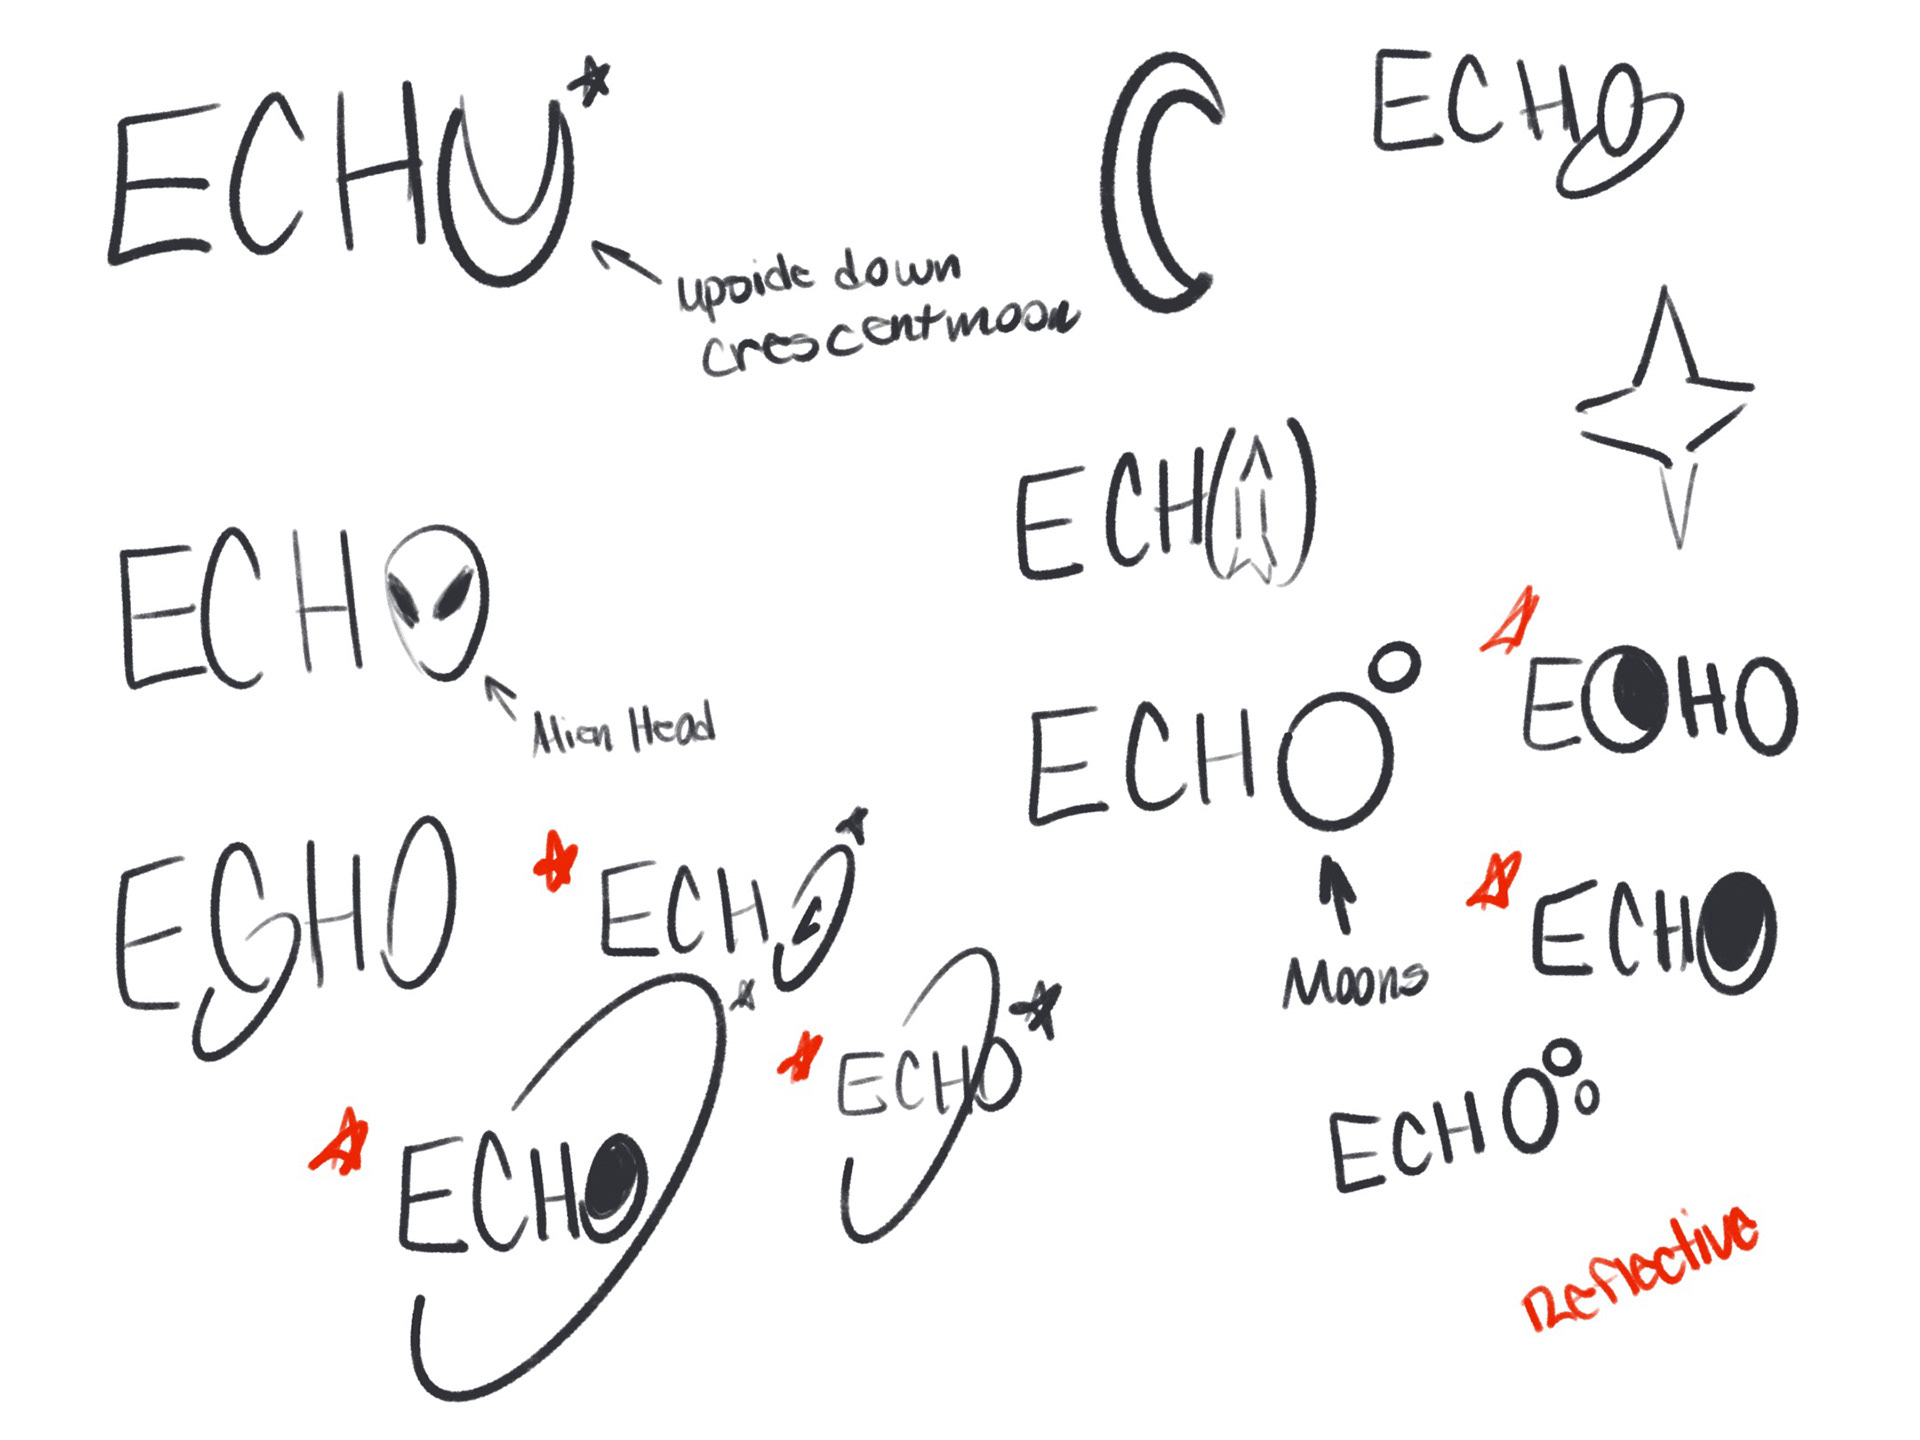 ECHU
ECHO
upside down
crescent moon
ECH()
ECHO
Alien Head
ECHO
ECHO
ECHO
ECHO
ECHO
Moons
ECHO
ECHO
ECHO
Reflective